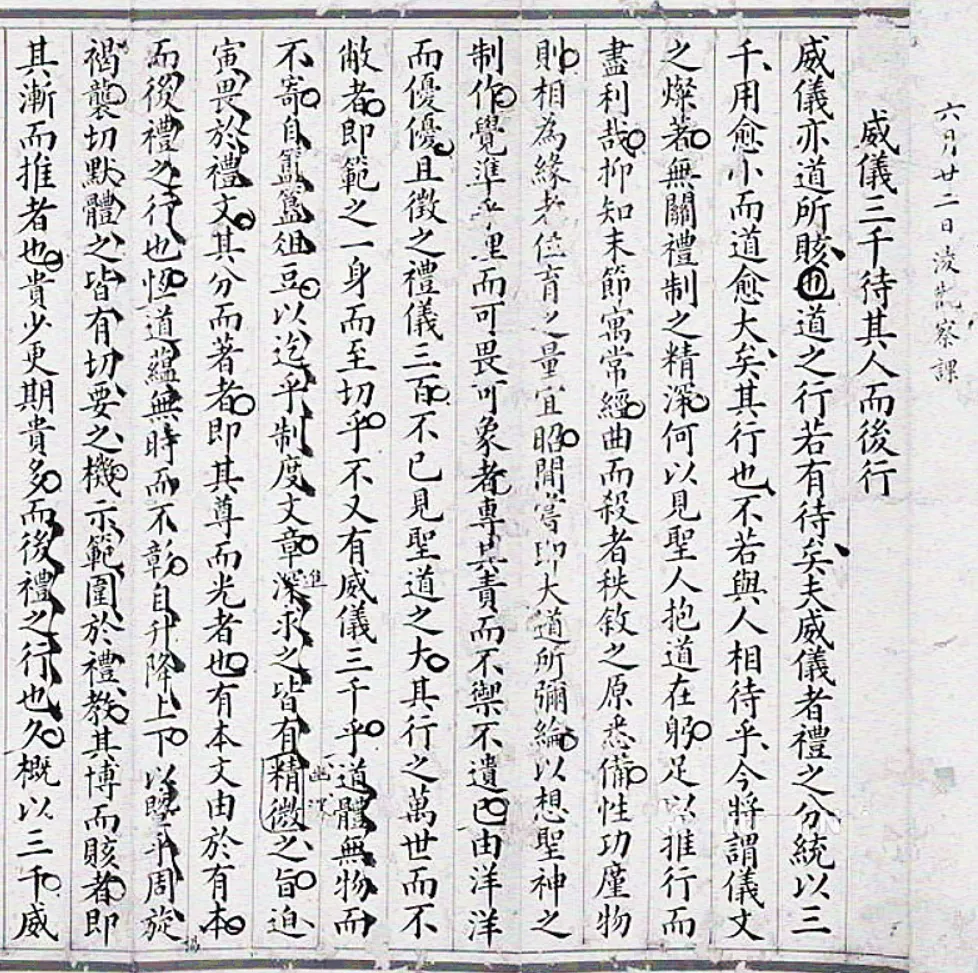 六月廿二日淩先察課
威儀三千待其人而後行
威儀亦道所賅也道之行若有待矣夫威儀者禮之分統以三
千用愈小而道愈大矣其行也不若與人相待乎今將謂儀文
之燦著無關禮制之精深何以見聖人抱道在躬足以推行而
盡利哉抑知末節寓常經曲而殺者秩敘之原悉備性功廑物
則相為緣者位育之量宜昭閒嘗即大道所彌綸以想聖神之
制作覺準乎里而可畏可象者專其責而不禦不遺已由洋洋
而優優且徵之禮儀三百不已見聖道之大其行之萬世而不
敝者即範之一身而至切乎不又有威儀三千乎道體無物而
不寄自簠簋俎豆以迄乎制度文章深求之皆有精微之旨迫
寅畏於禮文其分而著者即其尊而光者也有本文由於有本
而後禮之行也恆道蘊無時而不彰自升降上下以曁乎周旋
裼襲切默體之皆有切要之機示範圍於禮教其博而賅者即
其漸而推者也貴少更期貴多而後禮之行也久概以三千威